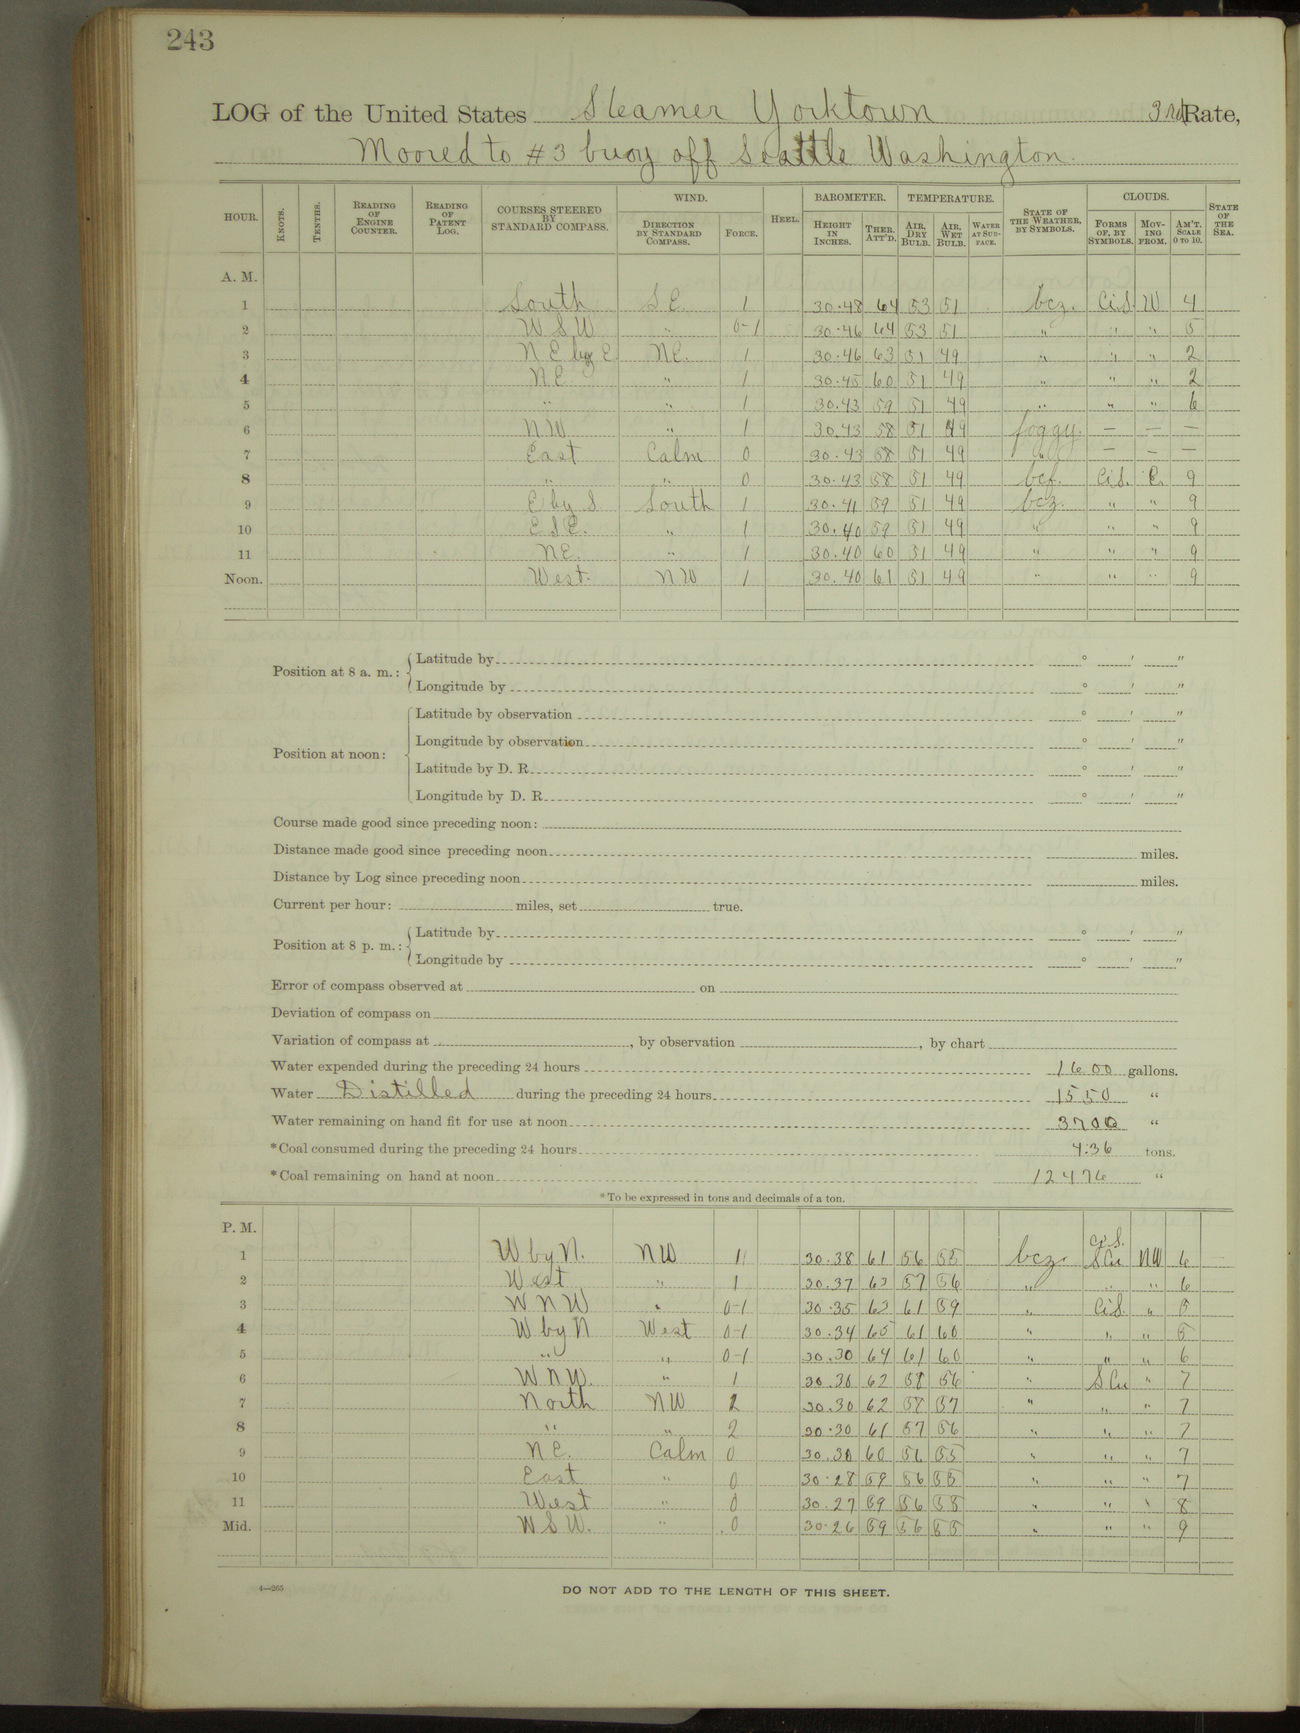 243
LOG of the United States Steamer Yorktown 3rd Rate,
Moored to #3 buoy off Seattle Washington.
HOUR. KNOTS. TENTHS. READING OF ENGINE COUNTER. READING OF PATENT LOG. COURSES STEERED BY STANDARD COMPASS. WIND. DIRECTION BY STANDARD COMPASS. FORCE. HEEL. BAROMETER. HEIGHT IN INCHES. THER. ATT'D. TEMPERATURE. AIR, DRY BULB. AIR, WET BULB. WATER AT SURFACE. STATE OF THE WEATHER, BY SYMBOLS. CLOUDS. FORMS OF, BY SYMBOLS. MOVING FROM. AM'T. SCALE 0 TO 10. STATE OF THE SEA.
A. M.
1 South S.E. 1 30.48 64 53 51 bcz. Ci.S. W 4
2 W S W " 0-1 30.46 64 53 51 " " " 5
3 N E by E NE. 1 30.46 63 51 49 " " " 2
4 NE. " 1 30.45 60 51 49 " " " 2
5 " " 1 30.43 59 51 49 " " " 6
6 NW " 1 30.43 58 51 49 foggy. — — —
7 East Calm 0 30.43 58 51 49 " — — —
8 " " 0 30.43 58 51 49 bcf. Ci.S. E. 9
9 E by S South 1 30.41 59 51 49 bcz. " " 9
10 E S E. " 1 30.40 59 51 49 " " " 9
11 NE. " 1 30.40 60 51 49 " " " 9
Noon. West. NW 1 30.40 61 51 49 " " " 9
Position at 8 a. m.: Latitude by ° ' "
Longitude by ° ' "
Position at noon: Latitude by observation ° ' "
Longitude by observation ° ' "
Latitude by D. R. ° ' "
Longitude by D. R. ° ' "
Course made good since preceding noon:
Distance made good since preceding noon miles.
Distance by Log since preceding noon miles.
Current per hour: miles, set true.
Position at 8 p. m.: Latitude by ° ' "
Longitude by ° ' "
Error of compass observed at on
Deviation of compass on
Variation of compass at , by observation , by chart
Water expended during the preceding 24 hours 1600 gallons.
Water Distilled during the preceding 24 hours 1550 "
Water remaining on hand fit for use at noon 3700 "
*Coal consumed during the preceding 24 hours 4.36 tons.
*Coal remaining on hand at noon 124 76 "
*To be expressed in tons and decimals of a ton.
P. M.
1 W by N. NW 1 30.38 61 56 55 bcz. Ci.S. SCu NW 6
2 West " 1 30.37 63 57 56 " " " 6
3 W N W " 0-1 30.35 63 61 59 " Ci.S. " 5
4 W by N West 0-1 30.34 65 61 60 " " " 5
5 " " 0-1 30.30 64 61 60 " " " 6
6 W N W. " 1 30.30 62 58 56 " S Cu " 7
7 North NW 2 30.30 62 58 57 " " " 7
8 " " 2 30.30 61 57 56 " " " 7
9 N E. Calm 0 30.30 60 56 55 " " " 7
10 East " 0 30.28 59 56 55 " " " 7
11 West " 0 30.27 59 56 55 " " " 8
Mid. W S W. " 0 30.26 59 56 55 " " " 9
4—265
DO NOT ADD TO THE LENGTH OF THIS SHEET.